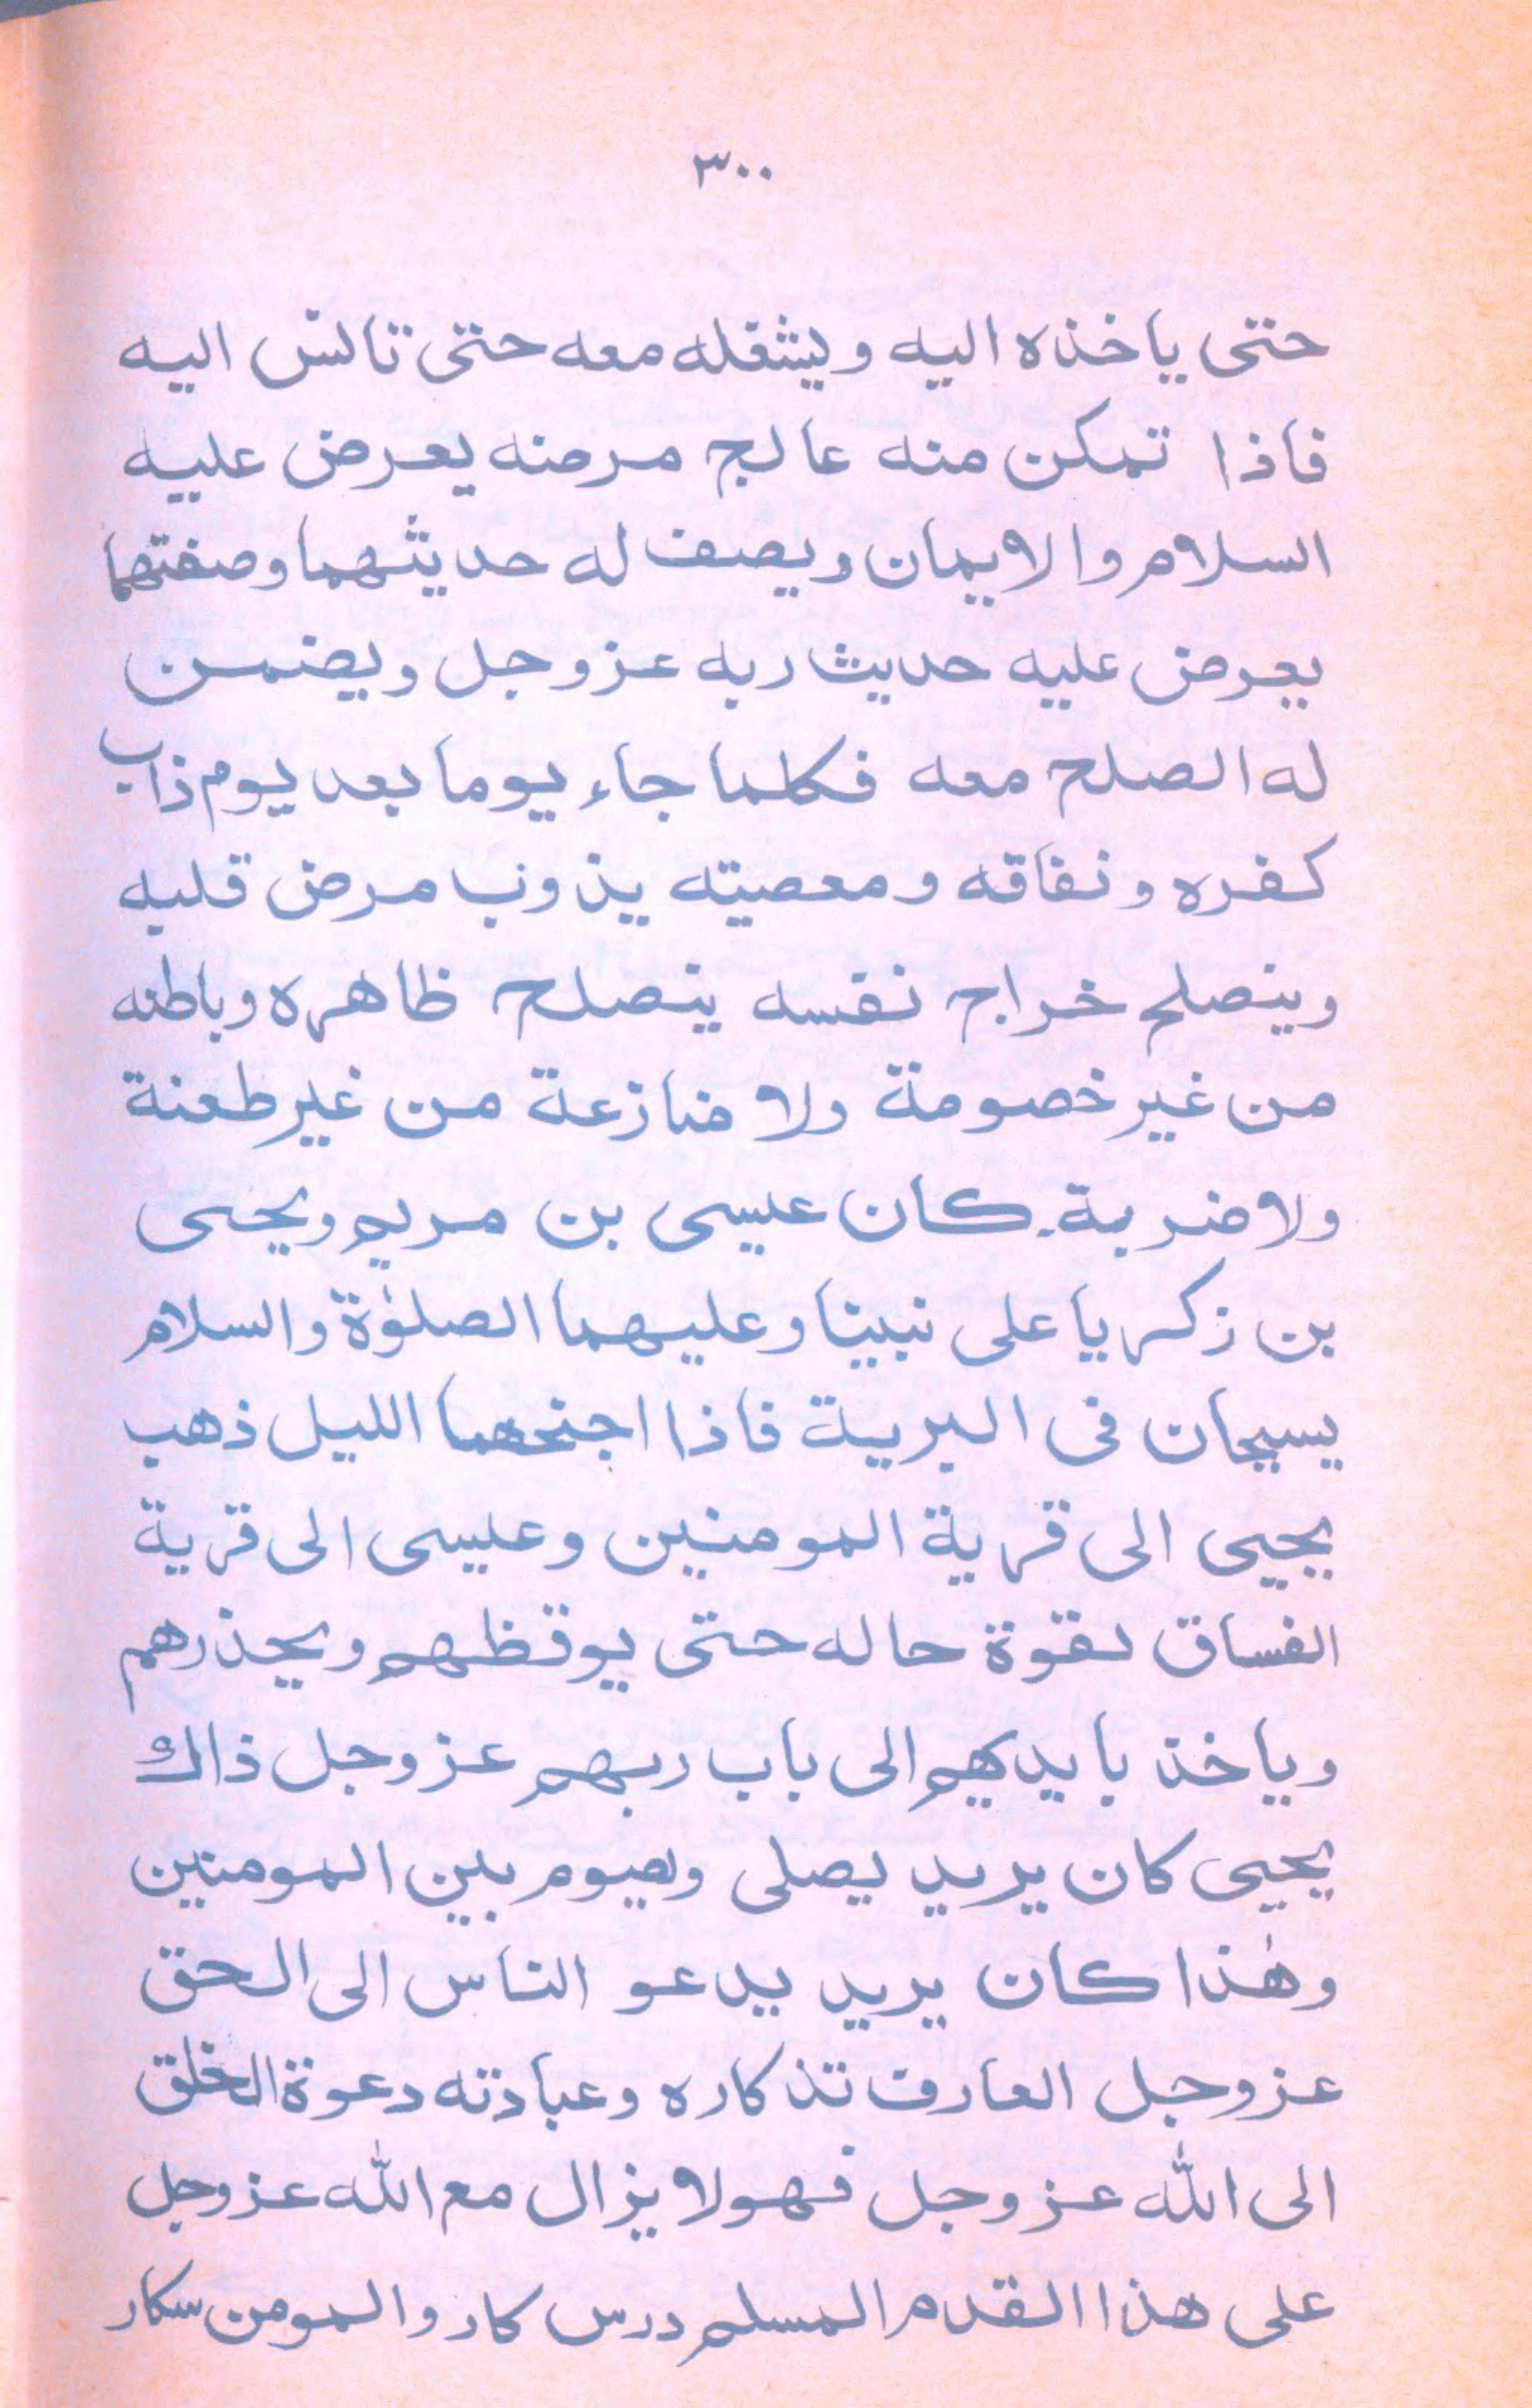 ٣٠٠
حتى ياخذه اليه ويشغله معه حتى تالس اليه
فاذا تمكن منه عالج مرضه يعرض عليه
السلام والايمان ويصف له حديثهما وصفتهما
يعرض عليه حديث ربه عز وجل ويضمن
له الصلح معه فكلما جاء يوما بعد يوم ذاب
كفره ونفاقه ومعصيته يذوب مرض قلبه
وينصلح خراج نفسه ينصلح ظاهره وباطنه
من غير خصومة ولا منازعة من غير طعنة
ولا ضربة۔ كان عيسى بن مريم ويحيى
بن زكريا على نبينا وعليهما الصلوٰة والسلام
يسيحان فى البرية فاذا اجنحهما الليل ذهب
يحيى الى قرية المومنين وعيسى الى قرية
الفساق لقوة حاله حتى يوقظهم ويحذرهم
وياخذ بايديهم الى باب ربهم عز وجل ذالك
يحيى كان يريد يصلى ويصوم بين المومنين
وهٰذا كان يريد يدعو الناس الى الحق
عز وجل العارف تذكاره وعبادته دعوة الخلق
الى الله عز وجل فهو لا يزال مع الله عز وجل
على هذا القدم المسلم درس كار والمومن سكار